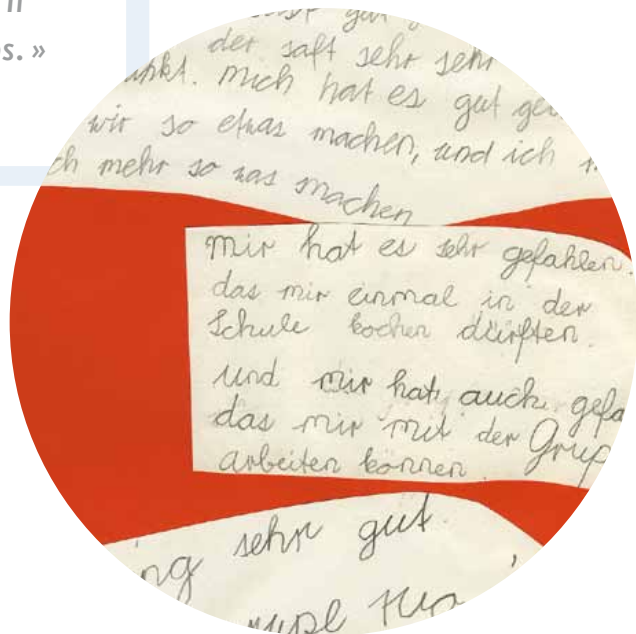 os. »
der saft sehr sehr
mich hat es gut
wir so etwas machen, und ich
mehr so was machen
mir hat es sehr gefahlen.
das mir einmal in der
Schule kochen dürften.
und mir hat auch
das mir mit der
arbeiten können.
sehr gut.